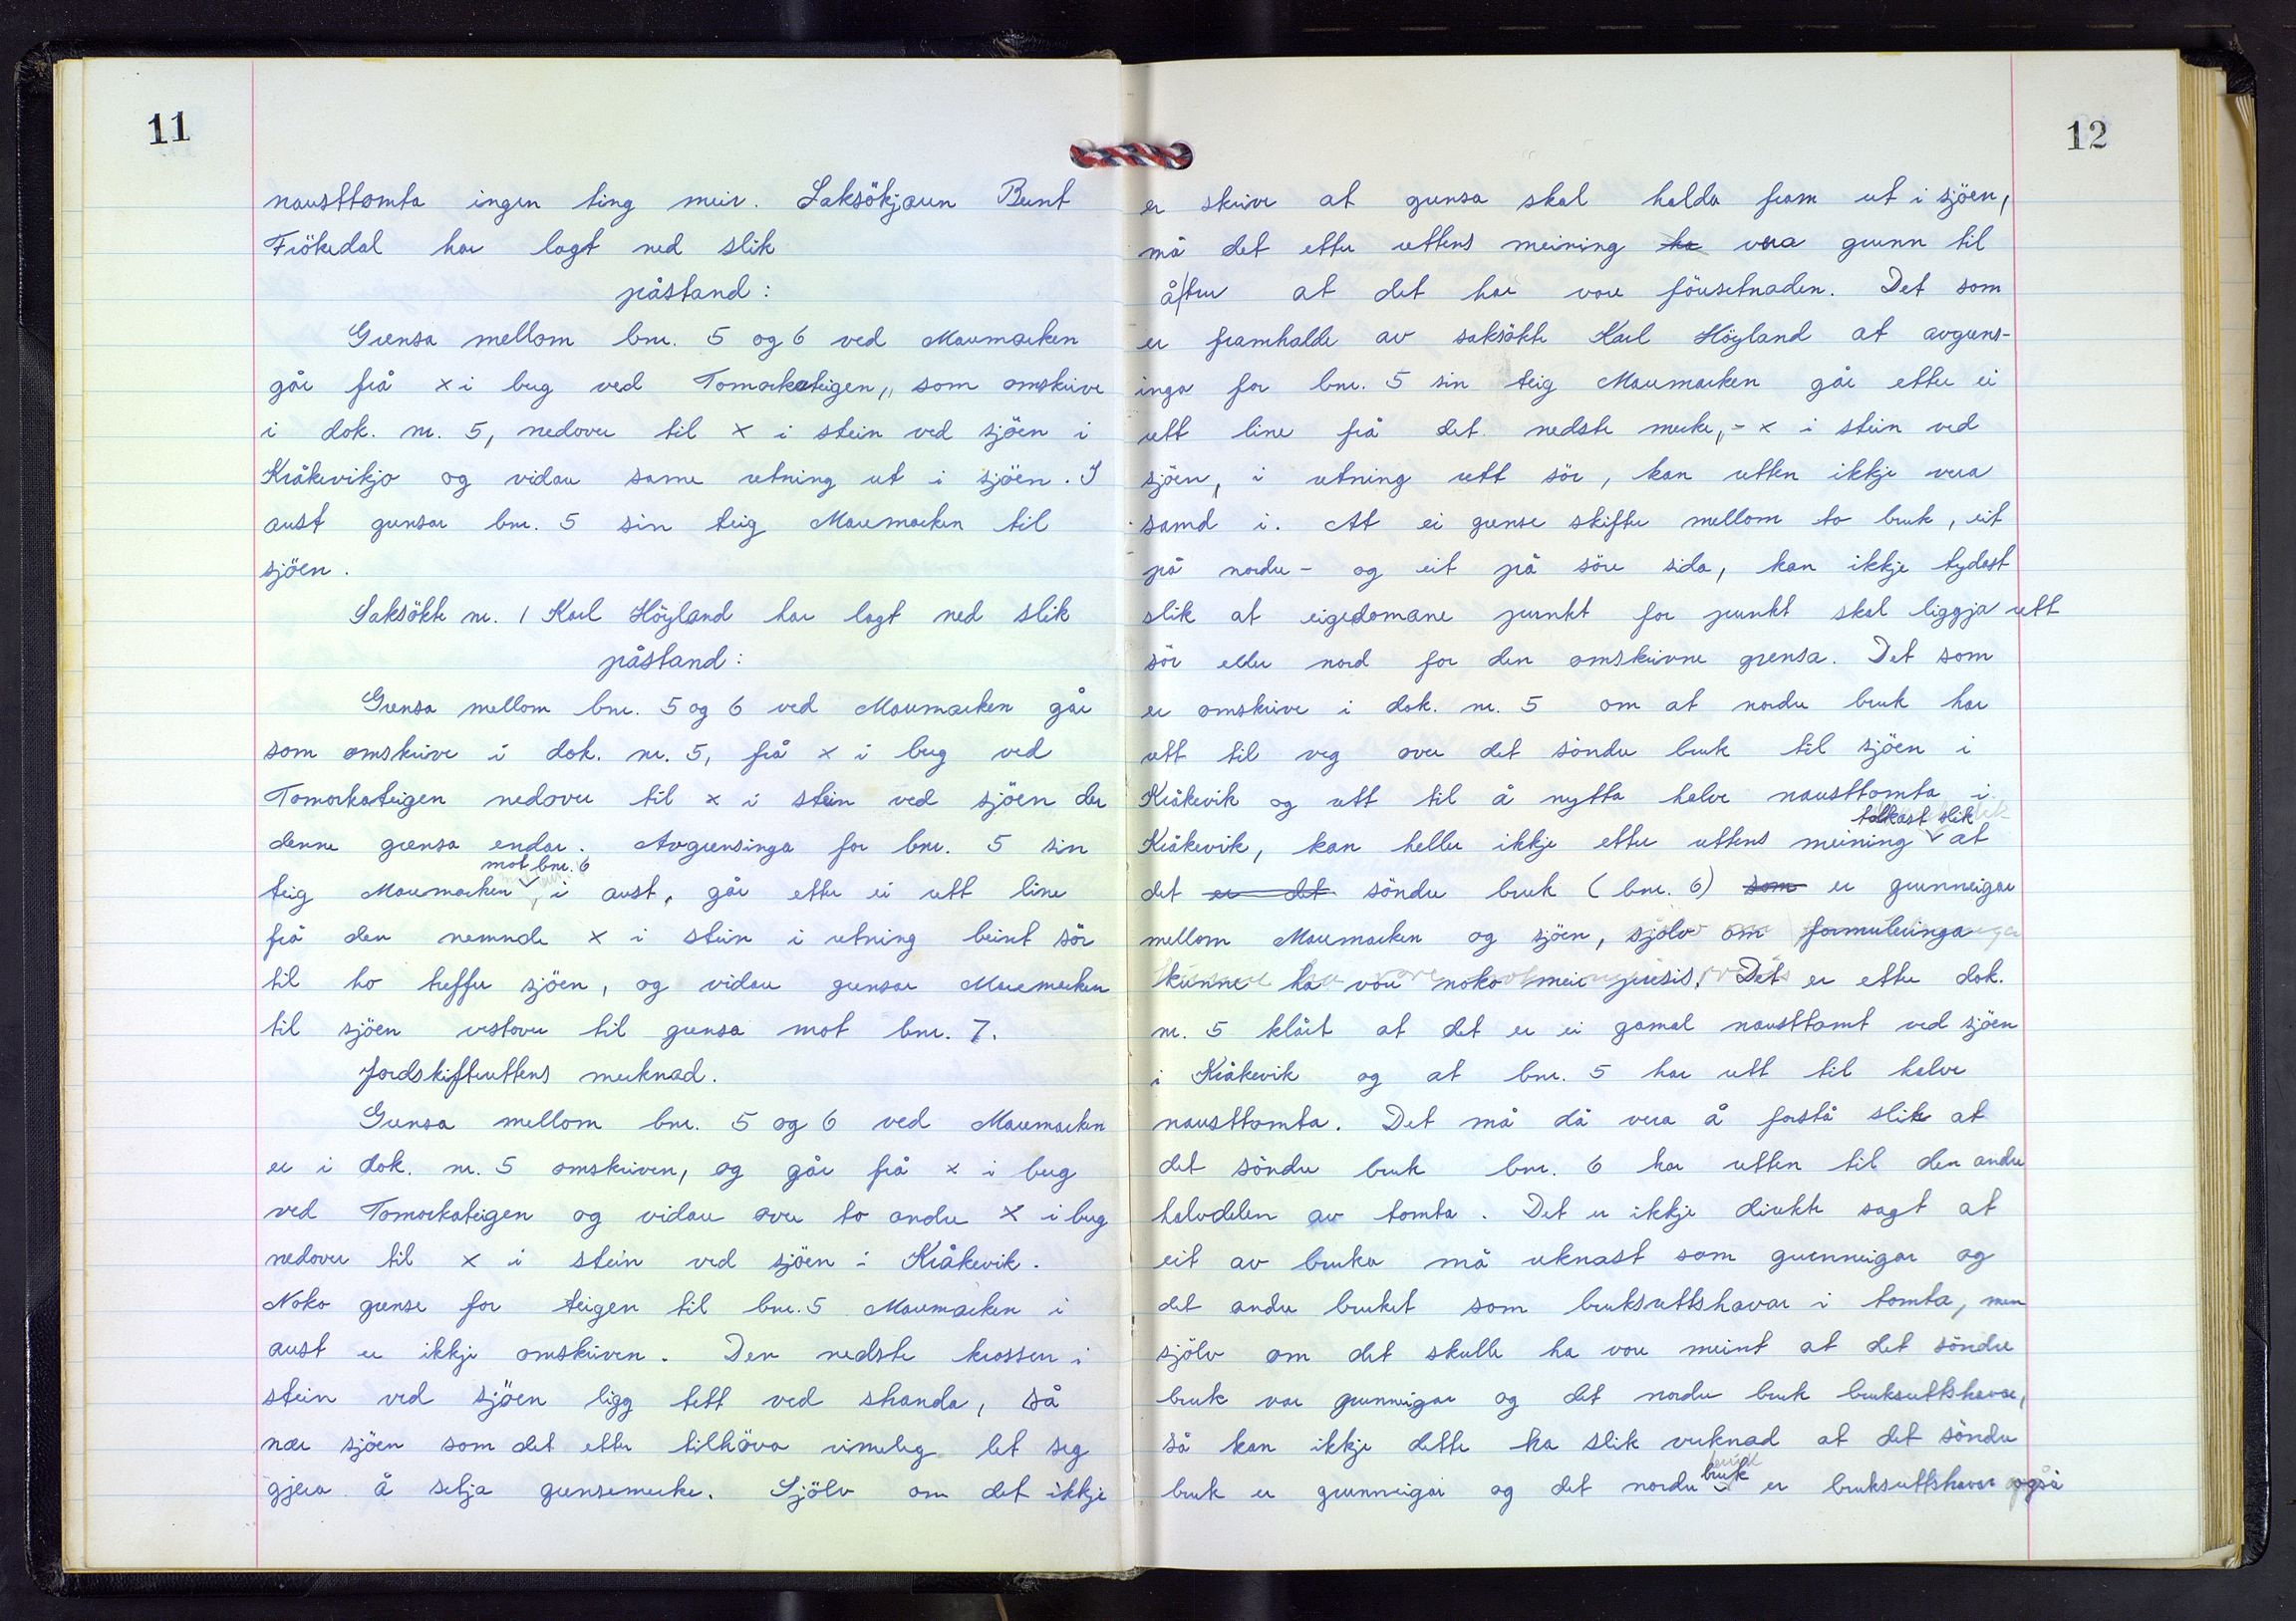 11
nausttomta ingen ting meir. Saksökjaren Bernt
Frökedal har lagt ned slik
påstand:
Grensa mellom bnr. 5 og 6 ved Maremarken
går frå x i berg ved Tomarkateigen, som omskrive
i dok. nr. 5, nedover til x i stein ved sjöen i
Kråkevikjo og vidare same retning ut i sjöen. I
aust grensar bnr. 5 sin teig Maremarken til
sjöen.
Saksökte nr. 1 Karl Höyland har lagt ned slik
påstand:
Grensa mellom bnr. 5 og 6 ved Maremarken går
som omskrive i dok. nr. 5, frå x i berg ved
Tomarkateigen nedover til x i stein ved sjöen der
denne grensa endar. Avgrensinga for bnr. 5 sin
mot bnr. 6
teig Maremarken, i aust, går etter ei rett line
frå den nemnde x i stein i retning beint sör
til ho treffer sjöen, og vidare grensar Maremarken
til sjöen vestover til grensa mot bnr. 7.
Jordskifterettens merknad.
Grensa mellom bnr. 5 og 6 ved Maremarken
er i dok. nr. 5 omskriven, og går frå x i berg
ved Tomarkateigen og vidare over to andre x i berg
nedover til x i stein ved sjöen i Kråkevik.
Noko grense for teigen til bnr. 5 Maremarken i
aust er ikkje omskriven. Den nedste krossen i
stein ved sjöen ligg tett ved stranda, så
nær sjöen som det etter tilhöva rimeleg let seg
gjera å setja grensemerke. Sjölv om det ikkje
12
er skrive at grensa skal halda fram ut i sjöen,
må det etter rettens meining ha vera grunn til
å tru at det har vore föresetnaden. Det som
er framhalde av saksökte Karl Höyland at avgrens-
inga for bnr. 5 sin teig Maremarken går etter ei
rett line frå det nedste merke, - x i stein ved
sjöen, i retning rett sör, kan retten ikkje vera
samd i. At ei grense skifter mellom to bruk, eit
på nordre- og eit på söre sida, kan ikkje tydast
slik at eigedomane punkt for punkt skal liggja rett
sör eller nord for den omskrivne grensa. Det som
er omskrive i dok. nr. 5 om at nordre bruk har
rett til veg over det söndre bruk til sjöen i
Kråkevik og rett til å nytta halve nausttomta i
tolkast slik
Kråkevik, kan heller ikkje etter rettens meining at
det er det söndre bruk (bnr. 6) som er grunneigar
mellom Maremarken og sjöen, sjölv om formuleringa
kunne ha vore noko meir presis. Det er etter dok.
nr. 5 klårt at det er ei gamal nausttomt ved sjöen
i Kråkevik og at bnr. 5 har rett til halve
nausttomta. Det må då vera å forstå slik at
det söndre bruk bnr. 6 har retten til den andre
halvdelen av tomta. Det er ikkje direkte sagt at
eit av bruka må reknast som grunneigar og
det andre bruket som bruksrettshavar i tomta, men
sjölv om det skulle ha vore meint at det söndre
bruk var grunneigar og det nordre bruk bruksrettshavar,
så kan ikkje dette ha slik verknad at det söndre
bruk
bruk er grunneigar og det nordre er bruksrettshavar også